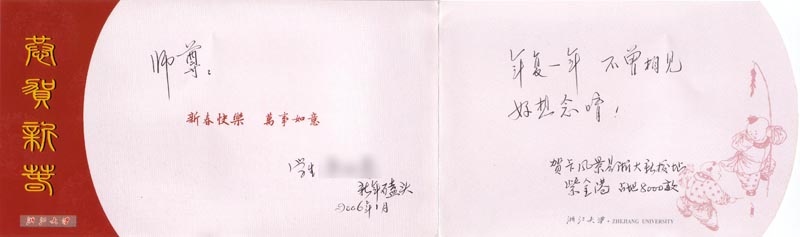 恭賀新春
浙江大学
师尊:
新春快樂 萬事如意
学生
新年磕头
2006年1月
年复一年 不曾相见
好想念唷!
贺卡风景是浙大新校址
紫金港 占地8000亩
浙江大学 · ZHEJIANG UNIVERSITY